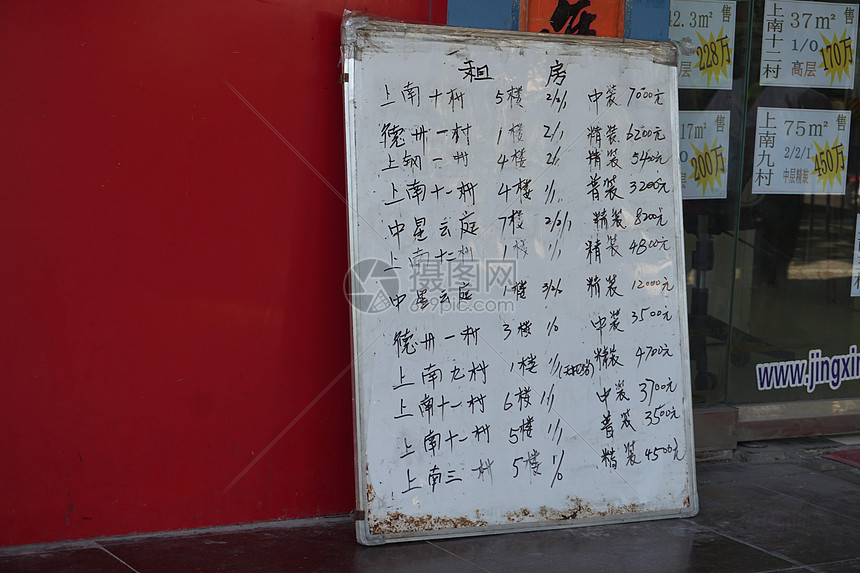 租 房
上南十村 5楼 2/2/1 中装 7000元
德州一村 1楼 2/1 精装 6200元
上钢一村 4楼 2/1 精装 5400元
上南十一村 4楼 1/1 普装 3200元
中星云庭 7楼 2/2/1 精装 8200元
上南十二村 1楼 1/1 精装 4800元
中星云庭 1楼 3/2/2 精装 12000元
德州一村 3楼 1/0 中装 3500元
上南九村 1楼 1/1 精装 4700元
上南十一村 6楼 1/1 中装 3700元
上南十一村 5楼 1/1 普装 3500元
上南三村 5楼 1/0 精装 4500元
2.3m² 售
228万
上南十二村
37m² 售
1/0
高层
170万
17m² 售
200万
上南九村
75m² 售
2/2/1
中层精装
450万
www.jingxin
摄图网